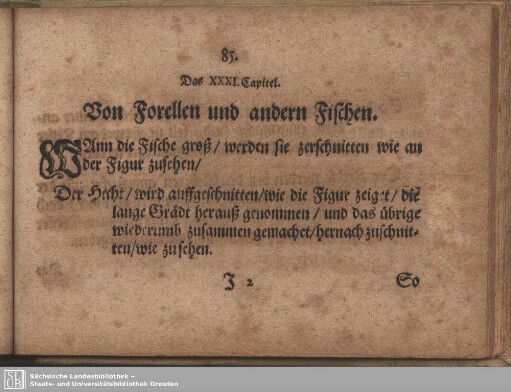 85.
Das XXXI. Capitel.
Von Forellen und andern Fischen.
WAnn die Fische groß/ werden sie zerschnitten wie an
der Figur zusehen/
Der Hecht/ wird auffgeschnitten/wie die Figur zeiget/ die
lange Grädt herauß genommen/ und das übrige
wiederumb zusammen gemachet/hernach zuschnit-
ten/wie zu sehen.
J 2 So
Sächsische Landesbibliothek –
Staats- und Universitätsbibliothek Dresden